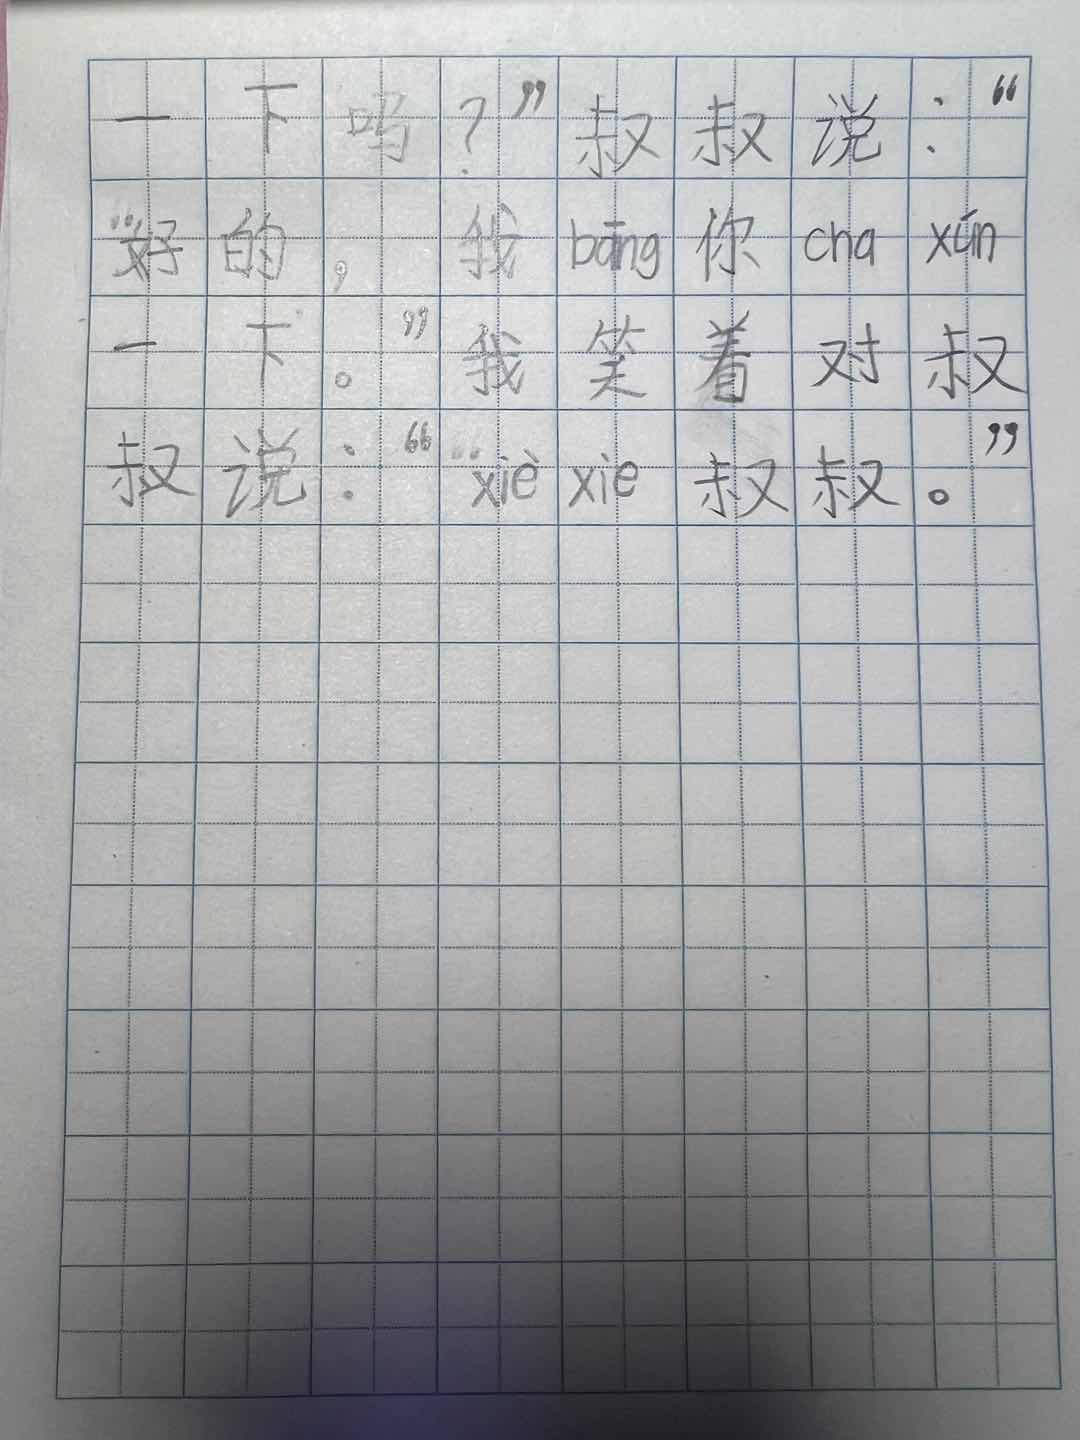 一下吗？”叔叔说：“
好的，我bāng你cha xún
一下。”我笑着对叔
叔说：“xiè xie叔叔。”